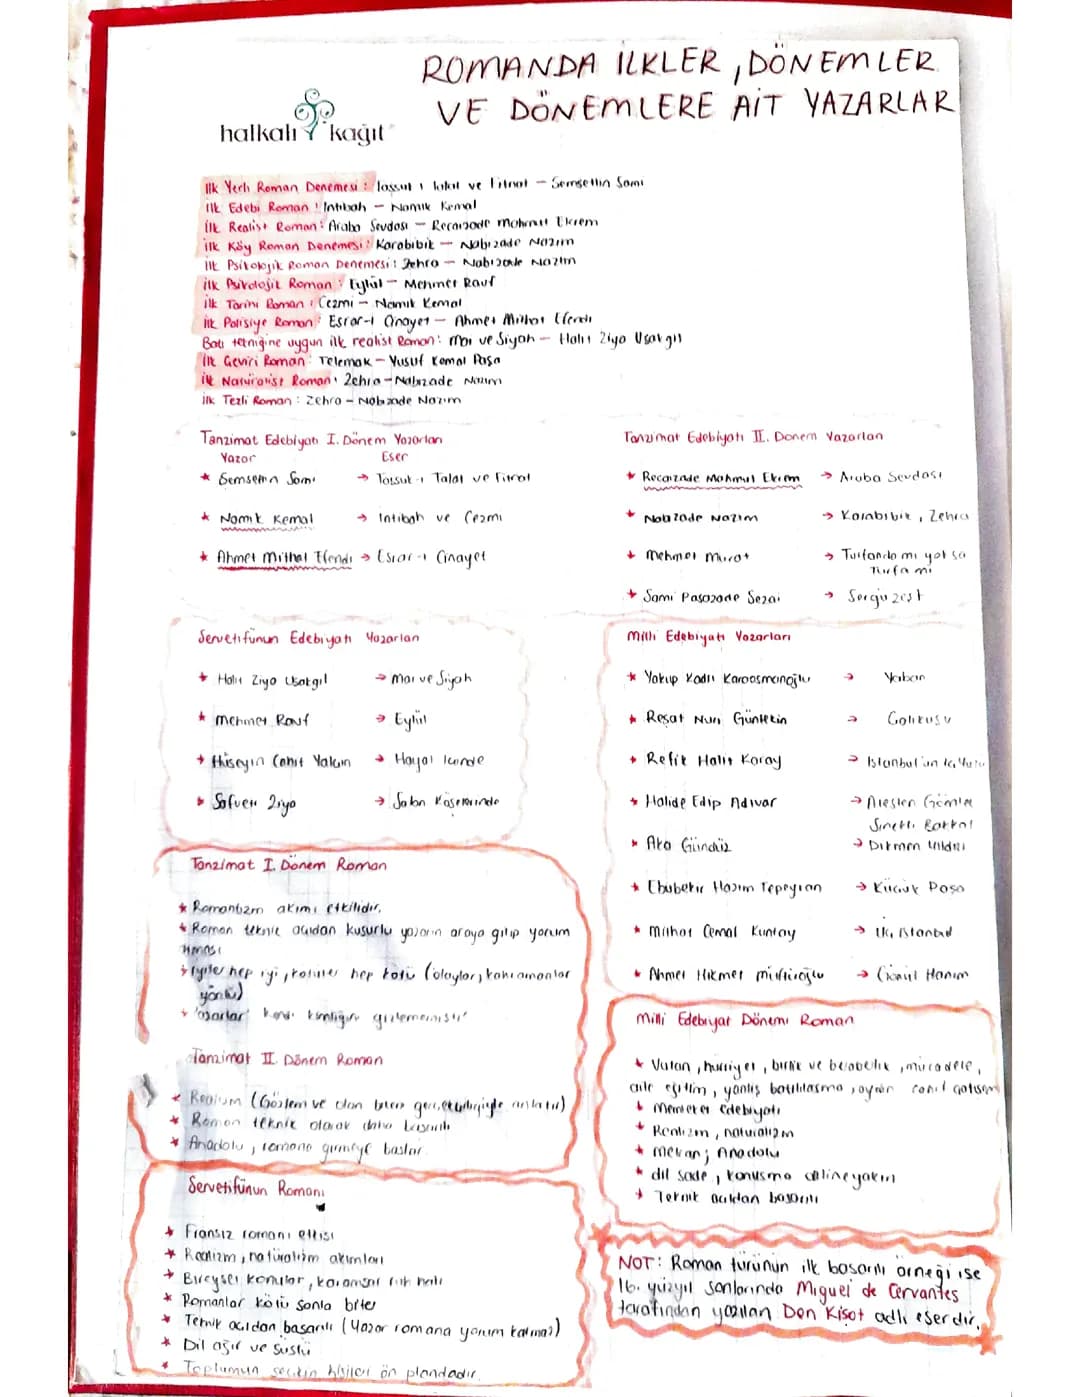 ROMANDA İLKLER, DÖNEMLER
VE DÖNEMLERE AİT YAZARLAR
halkalı kağıt
İlk Yerli Roman Denemesi: Taşşuk ı Talat ve Fitnat - Şemsettin Sami
İlk Edebi Roman: İntibah - Namık Kemal
İlk Realist Roman: Araba Sevdası - Recaizade Mahmut Ekrem
İlk Köy Roman Denemesi: Karabibik - Nabizade Nazım
İlk Psikolojik Roman Denemesi: Zehra - Nabizade Nazım
İlk Psikolojik Roman: Eylül - Mehmet Rauf
İlk Tarihi Roman: Cezmi - Namık Kemal
İlk Polisiye Roman: Esrar-ı Cinayet - Ahmet Mithat Efendi
Batı tekniğine uygun ilk realist Roman: Mai ve Siyah - Halit Ziya Uşakgil
İlk Çeviri Roman: Telemak - Yusuf Kemal Paşa
İlk Natüralist Roman: Zehra - Nabizade Nazım
İlk Tezli Roman: Zehra - Nabizade Nazım
Tanzimat Edebiyatı I. Dönem Yazarları
Yazar Eser
* Şemsettin Sami → Taşşuk ı Talat ve Fitnat
* Namık Kemal → İntibah ve Cezmi
* Ahmet Mithat Efendi → Esrar-ı Cinayet
Tanzimat Edebiyatı II. Dönem Yazarları
* Recaizade Mahmut Ekrem → Araba Sevdası
* Nabizade Nazım → Karabibik, Zehra
* Mehmet Murat → Turfanda mı yoksa
Turfa mı
* Sami Paşazade Sezai → Sergüzeşt
Servetifünun Edebiyatı Yazarları
* Halit Ziya Uşakgil → Mai ve Siyah
* Mehmet Rauf → Eylül
* Hüseyin Cahit Yalçın → Hayal İçinde
* Safveti Ziya → Salon Köşelerinde
Milli Edebiyatı Yazarları
* Yakup Kadri Karaosmanoğlu → Yaban
* Reşat Nuri Güntekin → Çalıkuşu
* Refik Halit Karay → İstanbul'un İç Yüzü
* Halide Edip Adıvar → Ateşten Gömlek
Sinekli Bakkal
* Aka Gündüz → Dikmen Yıldızı
* Ebubekir Hazım Tepeyran → Küçük Paşa
* Mithat Cemal Kuntay → Üç İstanbul
* Ahmet Hikmet Müftüoğlu → Gönül Hanım
Tanzimat I. Dönem Roman
* Romantizm akımı etkilidir.
* Roman teknik açıdan kusurlu yazarın araya girip yorum
* iyiler hep iyi, kötüler hep kötü (olaylar, kahramanlar
yönlü)
* Yazarlar kendi kimliğini gizlememiştir
Tanzimat II. Dönem Roman
* Realizm (Gözlem ve olan biten gerçekçiliğiyle anlatılır)
* Roman teknik olarak daha başarılı
* Anadolu, romana girmeye başlar.
Servetifünun Romanı
* Fransız romanı etkisi
* Realizm, natüralizm akımları
* Bireysel konular, karamsar ruh hali
* Romanlar kötü sonla biter
* Teknik açıdan başarılı (Yazar romana yorum katmaz)
* Dil ağır ve süslü
* Toplumun seçkin kişileri ön plandadır.
Milli Edebiyat Dönemi Roman
* Vatan, hürriyet, birlik ve beraberlik, mücadele,
aile eğitim, yanlış batılılaşma, aydın çatışması
* Memleket Edebiyatı
* Realizm, natüralizm
* Mekan; Anadolu
* dil sade, konuşma diline yakın
* Teknik açıdan başarılı
NOT: Roman türünün ilk başarılı örneği ise
16. yüzyıl sonlarında Miguel de Cervantes
tarafından yazılan Don Kişot adlı eserdir.